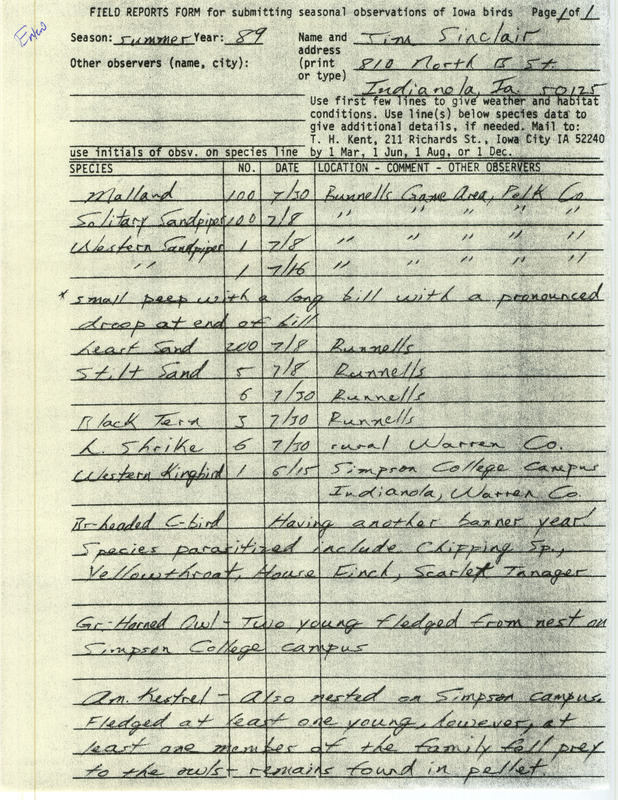 FIELD REPORTS FORM for submitting seasonal observations of Iowa birds Page 1 of 1
Season: summer Year: 89 Name and Jim Sinclair
address
Other observers (name, city): (print 810 North B St.
or type)
Indianola, Ia 50125
Use first few lines to give weather and habitat
conditions. Use line(s) below species data to
give additional details, if needed. Mail to:
T. H. Kent, 211 Richards St., Iowa City IA 52240
use initials of obsv. on species line by 1 Mar, 1 Jun, 1 Aug, or 1 Dec.
SPECIES NO. DATE LOCATION - COMMENT - OTHER OBSERVERS
Mallard 100 7/30 Runnells Game Area, Polk Co
Solitary Sandpiper 100 7/8 " " " " "
Western Sandpiper 1 7/8 " " " " "
" 1 7/16 " " " " "
* small peep with a long bill with a pronounced
droop at end of bill
Least Sand 200 7/8 Runnells
St.lt Sand 5 7/8 Runnells
6 7/30 Runnells
Black Tern 3 7/30 Runnells
L. Shrike 6 7/30 rural Warren Co.
Western Kingbird 1 6/15 Simpson College Campus
Indianola, Warren Co.
Br-headed C-bird Having another banner year!
Species parasitized include Chipping Sp.,
Yellowthroat, House Finch, Scarlet Tanager
Gr. Horned Owl - Two young fledged from nest on
Simpson College campus
Am. Kestrel - Also nested on Simpson campus.
Fledged at least one young, however, at
least one member of the family fell prey
to the owls - remains found in pellet.